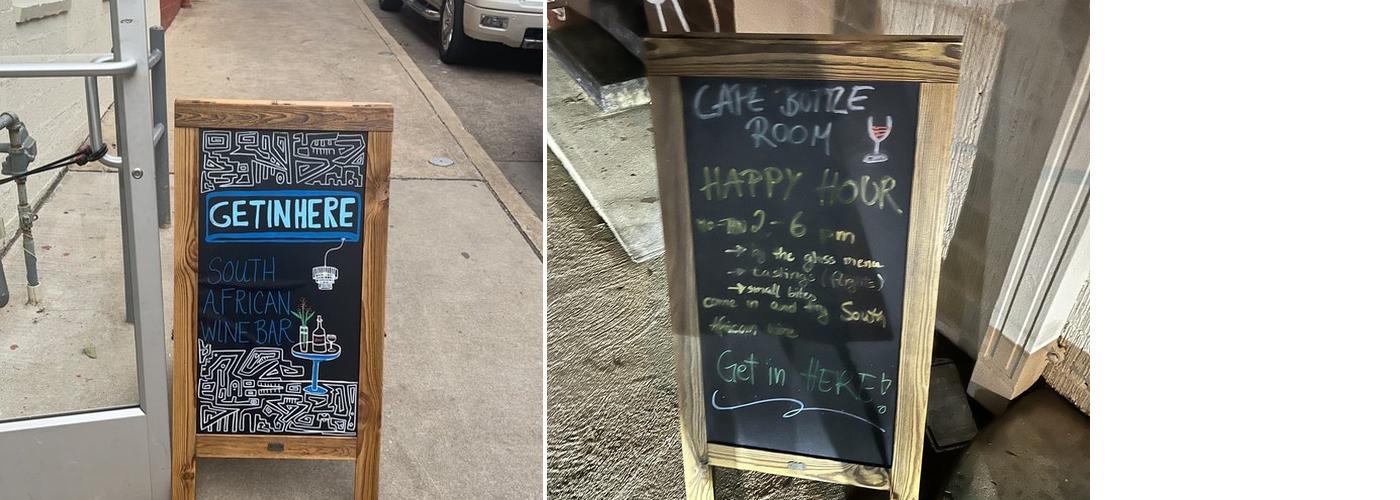 GET IN HERE
SOUTH
AFRICAN
WINE BAR
CAFE BOTTLE
ROOM
HAPPY HOUR
MO-THU 2-6 pm
→ by the glass menu
→ tastings (flights)
→ small bites
come in and try South
African wine
Get in HERE!